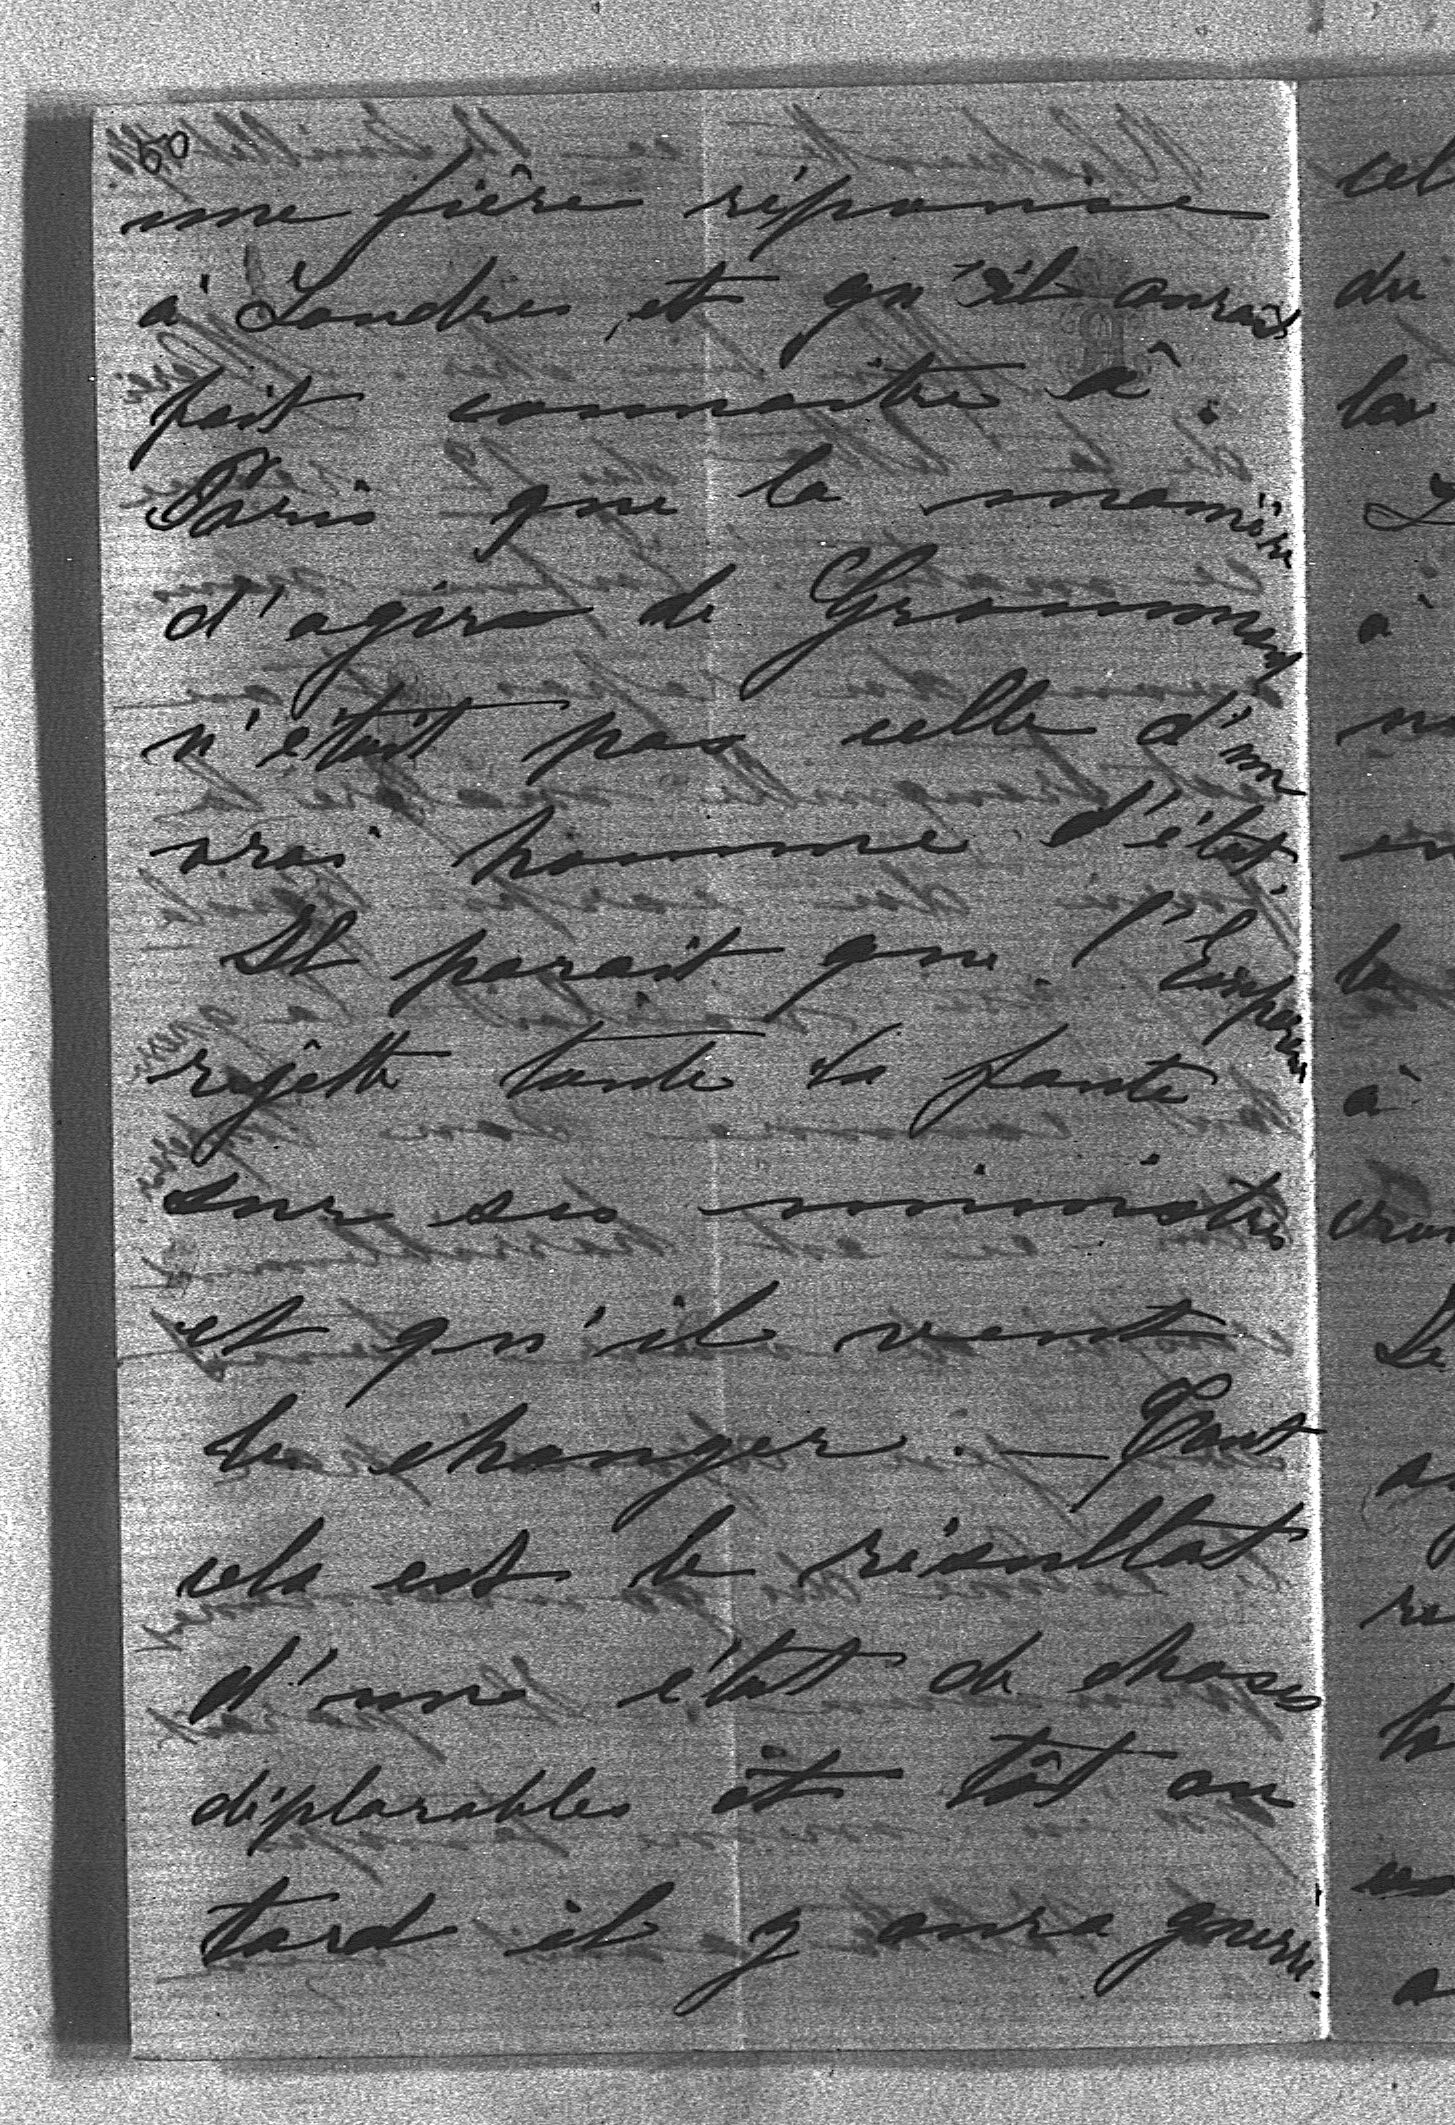 une fière réponse
à Londres et qu'il aurait
fait connaître à
Paris que la manière
d'agir de Grammont
n'était pas celle d'un
vrai homme d'état.
Il parait que l'Empereur
rejette toute la faute
sur ses ministres
et qu'il veut
les changer. — Tout
cela est le résultat
d'une état de choses
déplorables et tôt ou
tard il y aura guerre.